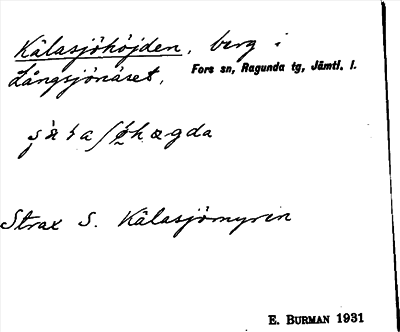 Kälasjöhöjden, berg i
Långsjönäset, Fors sn, Ragunda tg, Jämtl. l.
Strax S. Kälasjömyren
E. BURMAN 1931